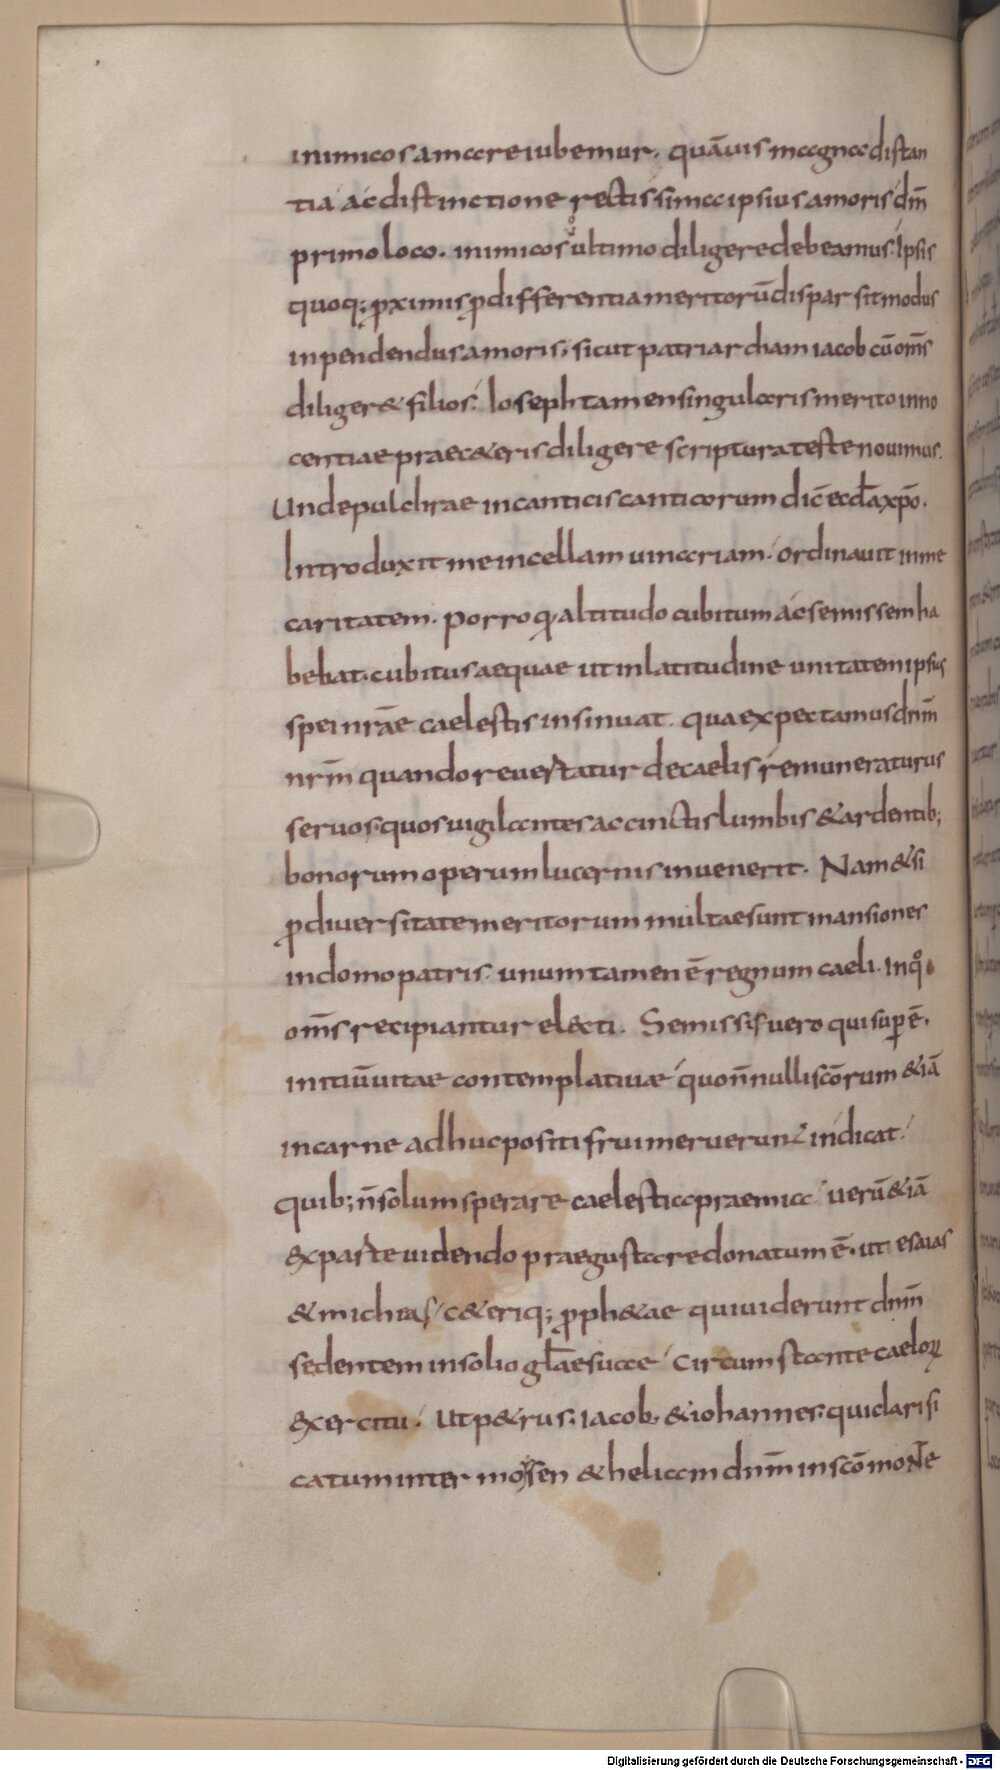 inimicos amare iubemur. quāuis magna distan
tia ac distinctione rectissima ipsius amoris dm̄
primo loco. inimicos ů ultimo diligere debeamus. Ipsis
quoq; ꝓximis ꝓ differentia meritorū dispar sit modus
inpendendus amoris. sicut patriarcham iacob cū om̄s
diliger& filios. Ioseph tamen singularis merito inno
centiae prae c&eris diligere scriptura teste nouimus.
Unde pulchrae in canticis canticorum dic̄ eccl̄a xp̄o.
Introduxit me in cellam uinariam. ordinauit in me
caritatem. Porro qđ altitudo cubitum ac semissem ha
bebat. cubitus aequae ut in latitudine unitatem ipsius
spei nr̄ae caelestis insinuat. qua expectamus dnm̄
nrm̄ quando reuertatur de caelis remuneraturus
seruos. quos uigilantes accinctis lumbis & ardentib;
bonorum operum lucernis inuenerit. Nam & si
ꝓ diuersitate meritorum multae sunt mansiones
in domo patris. unum tamen ē regnum caeli. in qo
om̄s recipiantur electi. Semissis uero qui suꝑ ē.
initiū uitae contemplatiuae quo n̄nulli sc̄orum & iā
in carne adhuc positi frui meruerunt indicat.
quib; n̄ solum sperare caelestia praemia uerū & iā
ex parte uidendo praegustare donatum ē. ut esaias
& micheas c&eriq; ꝓph&ae qui uiderunt dnm̄
sedentem in solio gl̄ae suae circumstante caeloꝝ
exercitu. Ut p&rus. iacob. & iohannes. qui clarifi
catum inter moysen & heliam dnm̄ in sc̄o monte
Digitalisierung gefördert durch die Deutsche Forschungsgemeinschaft - DFG